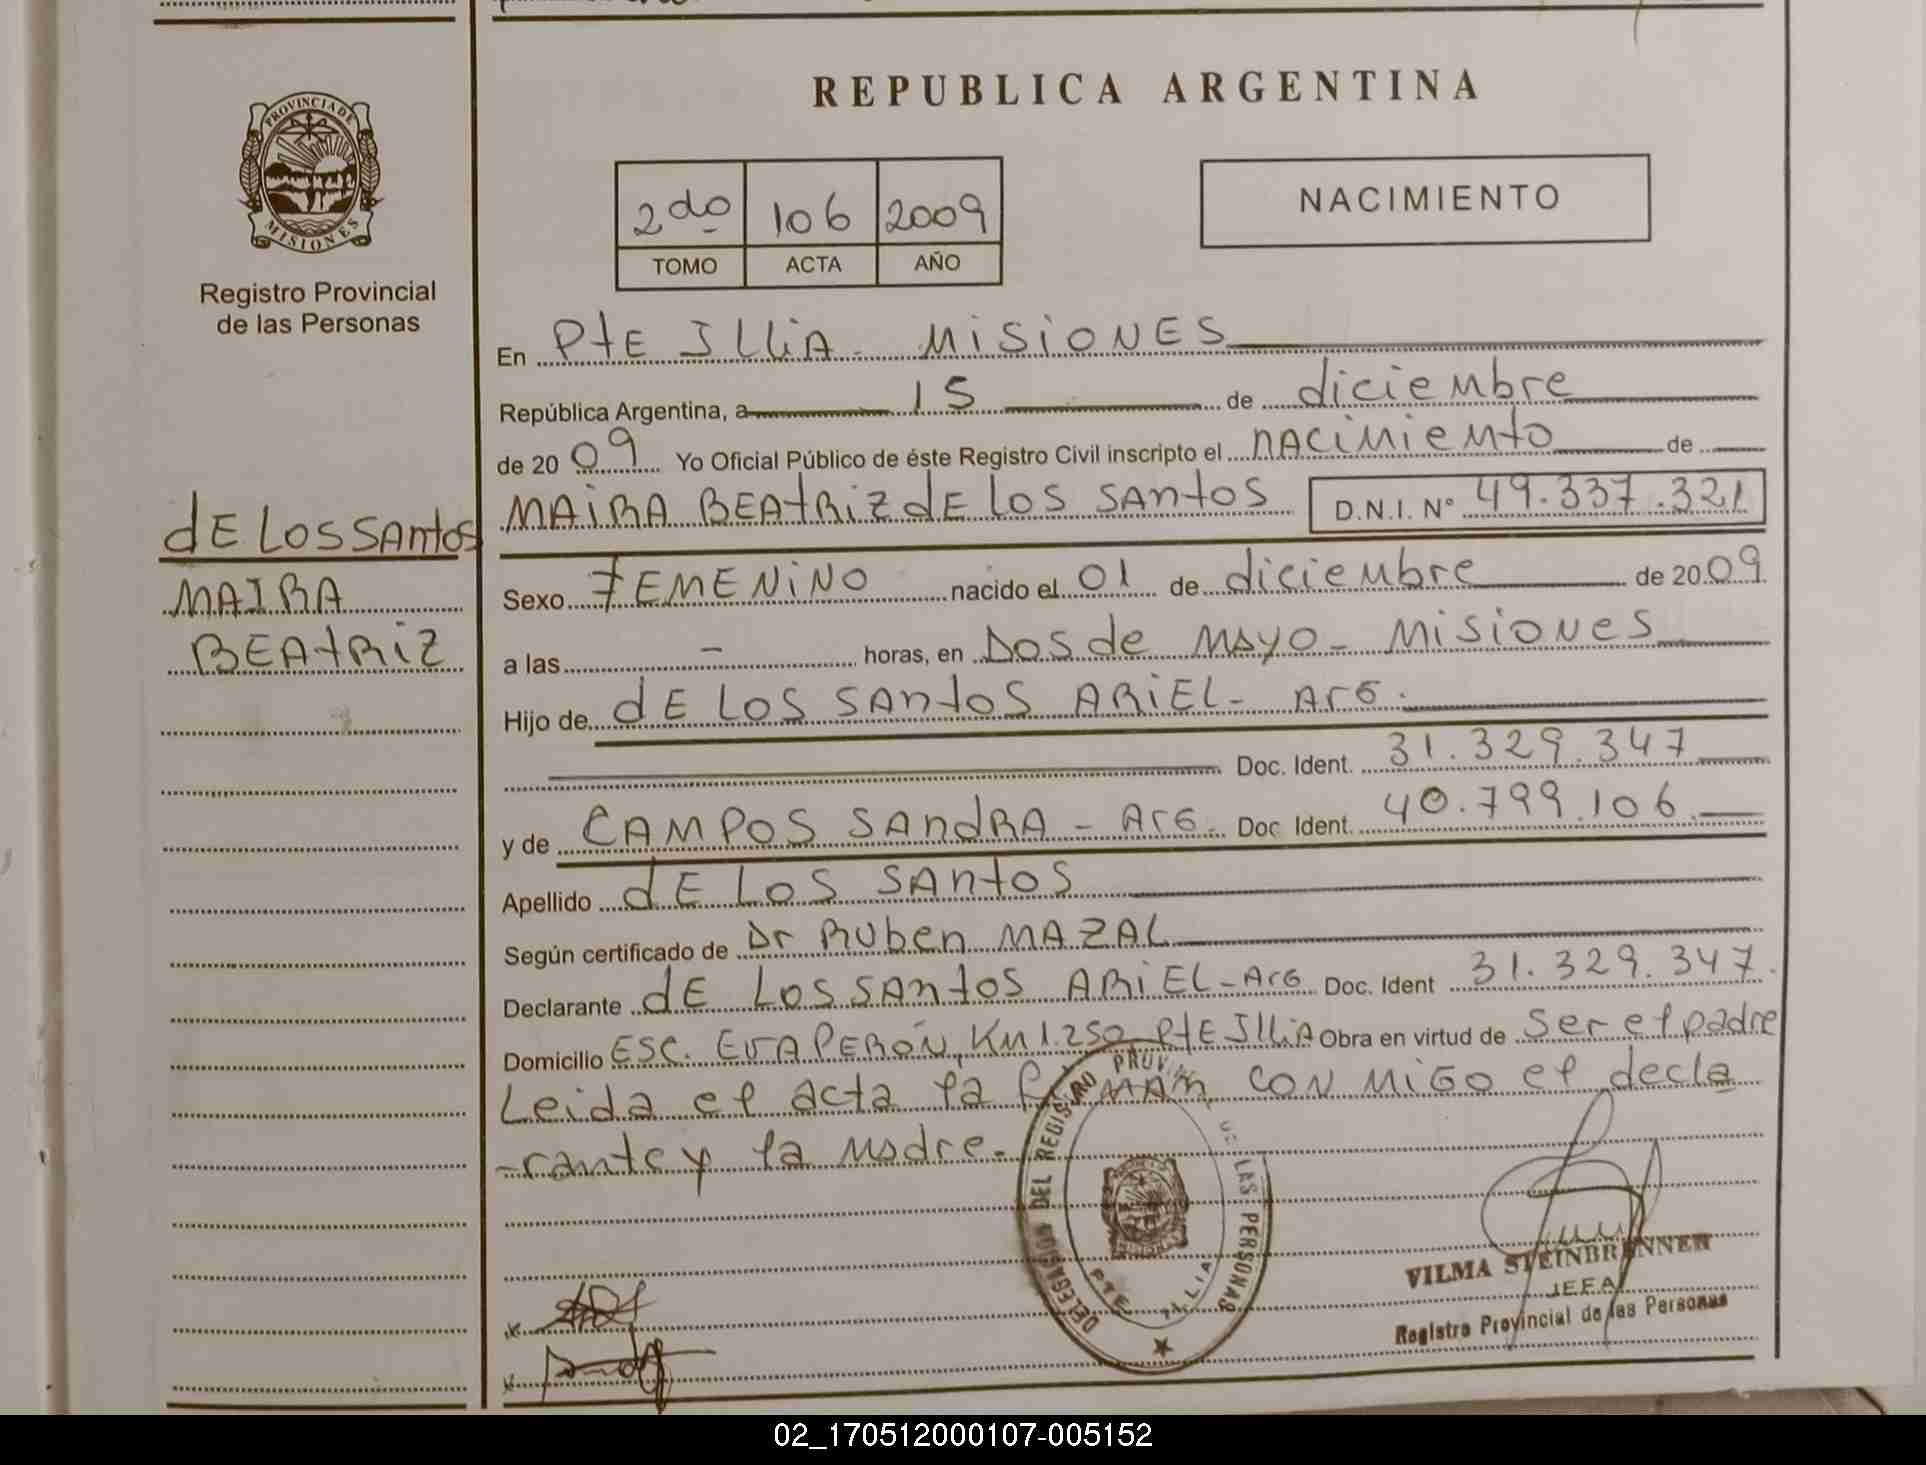 REPUBLICA ARGENTINA
PROVINCIA DE
MISIONES
Registro Provincial
de las Personas
2do 106 2009
TOMO ACTA AÑO
NACIMIENTO
dE LOS SANtos
MAIRA
BEAtRiZ
En PtE ILLiA - MISIONES
República Argentina, a 15 de diciembre
de 2009 Yo Oficial Público de éste Registro Civil inscripto el nACiMieNto de
MAIRA BEAtRiZ dE LOS SANtOS D.N.I. N° 49.337.321
Sexo FEMENINO nacido el 01 de diciembre de 2009
a las - horas, en DOS de MAYO - MISIONES
Hijo de dE LOS SANtOS ARIEL - ArG.
Doc. Ident. 31.329.347
y de CAMPOS SANdRA - ArG. Doc Ident. 40.799.106
Apellido dE LOS SANtOS
Según certificado de Dr RUben MAZAL
Declarante dE LOS SANtOS ARIEL - ArG Doc. Ident 31.329.347.
Domicilio ESC. EVA PERÓN, KM 1.250 PtE ILLiA Obra en virtud de Ser el padre
Leida el acta la firMAN CON MIGO el decla
-rante y la Madre.
DELEGACION DEL REGISTRO PROV. DE LAS PERSONAS
PTE. ILLIA
VILMA STEINBRENNER
JEFA
Registro Provincial de las Personas
02_170512000107-005152